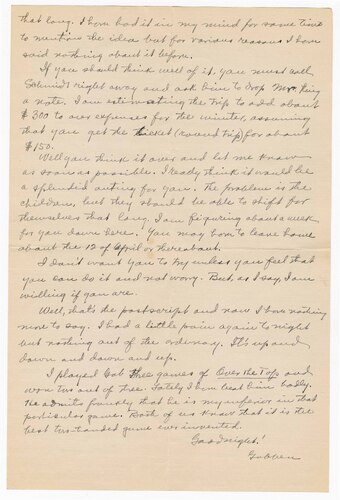 that long. I have had it in my mind for some time
to mention the idea but for various reasons I have
said nothing about it before.
If you should think well of it, you must call
Schmidt right away and ask him to drop Mr. King
a note. I am estimating the trip to add about
$300 to our expenses for the winter, assuming
that you get the ticket (round trip) for about
$150.
Well you think it over and let me know
as soon as possible. I really think it would be
a splendid outing for you. The problem is the
children, but they should be able to shift for
themselves that long. I am figuring about a week
for you down here. You may have to leave home
about the 12 of April or thereabout.
I don't want you to try unless you feel that
you can do it and not worry. But, as I say, I am
willing if you are.
Well, that's the postscript and now I have nothing
more to say. I had a little pain again to night
but nothing out of the ordinary. It's up and
down and down and up.
I played three games of Over the Top and
won two out of three. Lately I have beat him badly.
He admits frankly that he is my inferior in that
particular game. Both of us know that it is the
best two-handed game ever invented.
Good night!